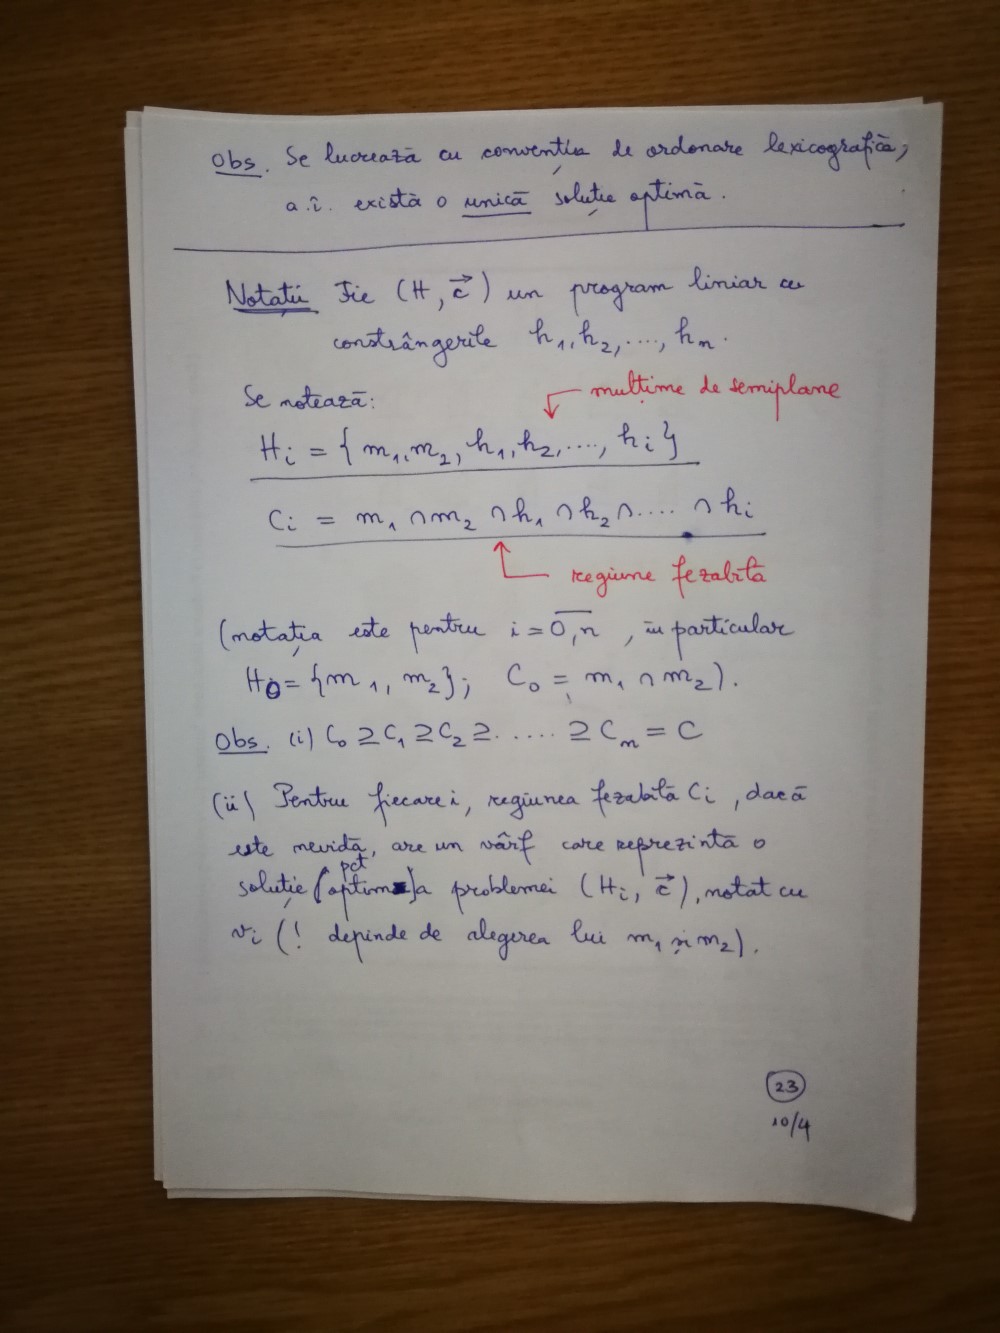 Obs. Se lucrează cu convenția de ordonare lexicografică,
a.î. există o unică soluție optimă.
Notații Fie (H, c⃗) un program liniar cu
constrângerile h₁, h₂, ...., hₙ.
Se notează:
mulțime de semiplane
Hᵢ = {m₁, m₂, h₁, h₂, ...., hᵢ}
Cᵢ = m₁ ∩ m₂ ∩ h₁ ∩ h₂ ∩ .... ∩ hᵢ
regiune fezabilă
(notația este pentru i = 0,n , în particular
H₀ = {m₁, m₂}; C₀ = m₁ ∩ m₂).
Obs. (i) C₀ ⊇ C₁ ⊇ C₂ ⊇ ..... ⊇ Cₙ = C
(ii) Pentru fiecare i, regiunea fezabilă Cᵢ, dacă
este nevidă, are un vârf care reprezintă o
pct
soluție (optim) a problemei (Hᵢ, c⃗), notat cu
vᵢ (! depinde de alegerea lui m₁ și m₂).
23
10/4